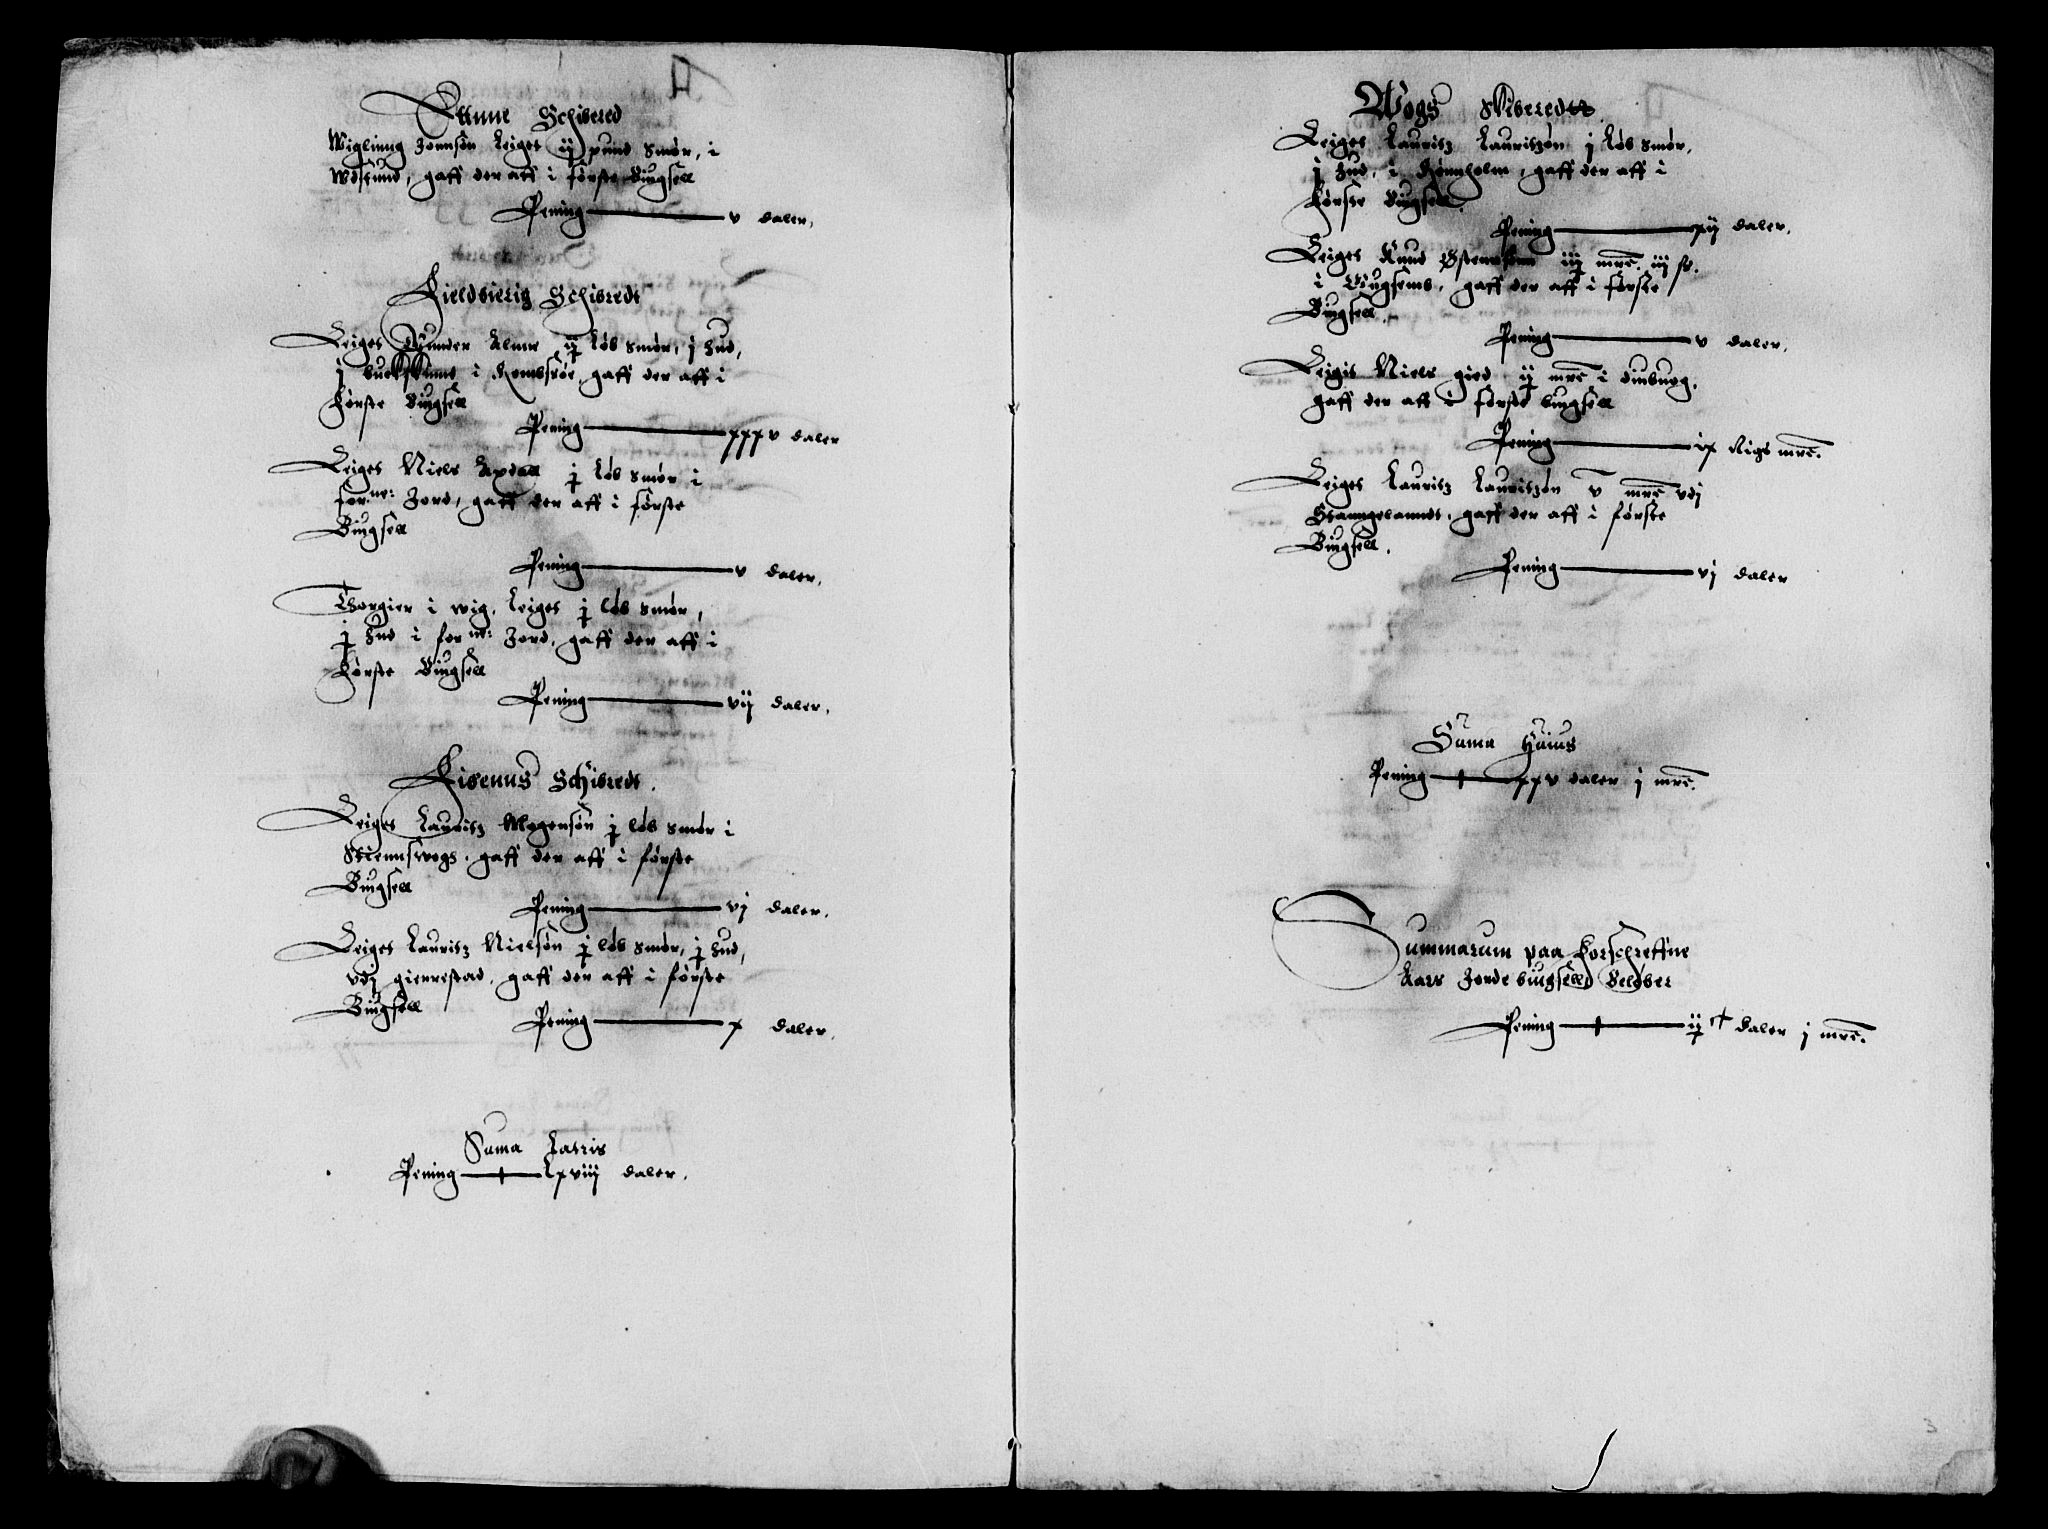 Etnne Schibred
Wiglinng Jonnsøn Leiges ij pund Smør, i
Wdsund, gaff der aff i første Bingsell
Pening v daler,
Fieldbierig Schibredt
Leiges Gunder Almr ij Løb Smør, j Hud,
j buckskind i gaff der aff i
Første Bingsell
Pening xxxv daler
Leiges Niels j Løb Smør i
for.ne: Jord, gaff der aff i første
Bingsell
Pening v daler,
Thorgier i wig, Leiges j løb Smør,
j Hud i for.ne: Jord, gaff der aff i
Første Bingsell
Pening vij daler,
Eidennis Schibredt.
Leiges Lauritz Mogensøn j løb Smør i
Stiennswogs, gaff der aff i første
Bingsell
Pening vj daler,
Leiges Lauritz Nielsøn j løb Smør, j Hud,
vdj gierrestad, gaff der aff i første
Bingsell
Pening x daler,
Suma Latris
Pening Lxviij daler,
4
Wogs Skibredtt
Leiges Lauritz Lauritzøn j Løb Smør,
j Hud, i Rønnholm, gaff der aff i
Første Bingsell.
Pening xij daler,
Leiges Knud iij mrc. iij sk.
i gaff der aff i første
Bingsell.
Pening v daler,
Leigis Niels gied ij mrc i
gaff der aff i første bingsell
Pening ix Rigs mrc.
Leiges Lauritz Lauritzøn v mrc vdj
Stanngelanndt, gaff der aff i første
Bingsell.
Pening vj daler
Suma Huius
Pening xxv daler j mrc.
Summarum paa Forschreffne
Aars Jorde bingselld Beløber
Pening ij c daler j mrc.
3